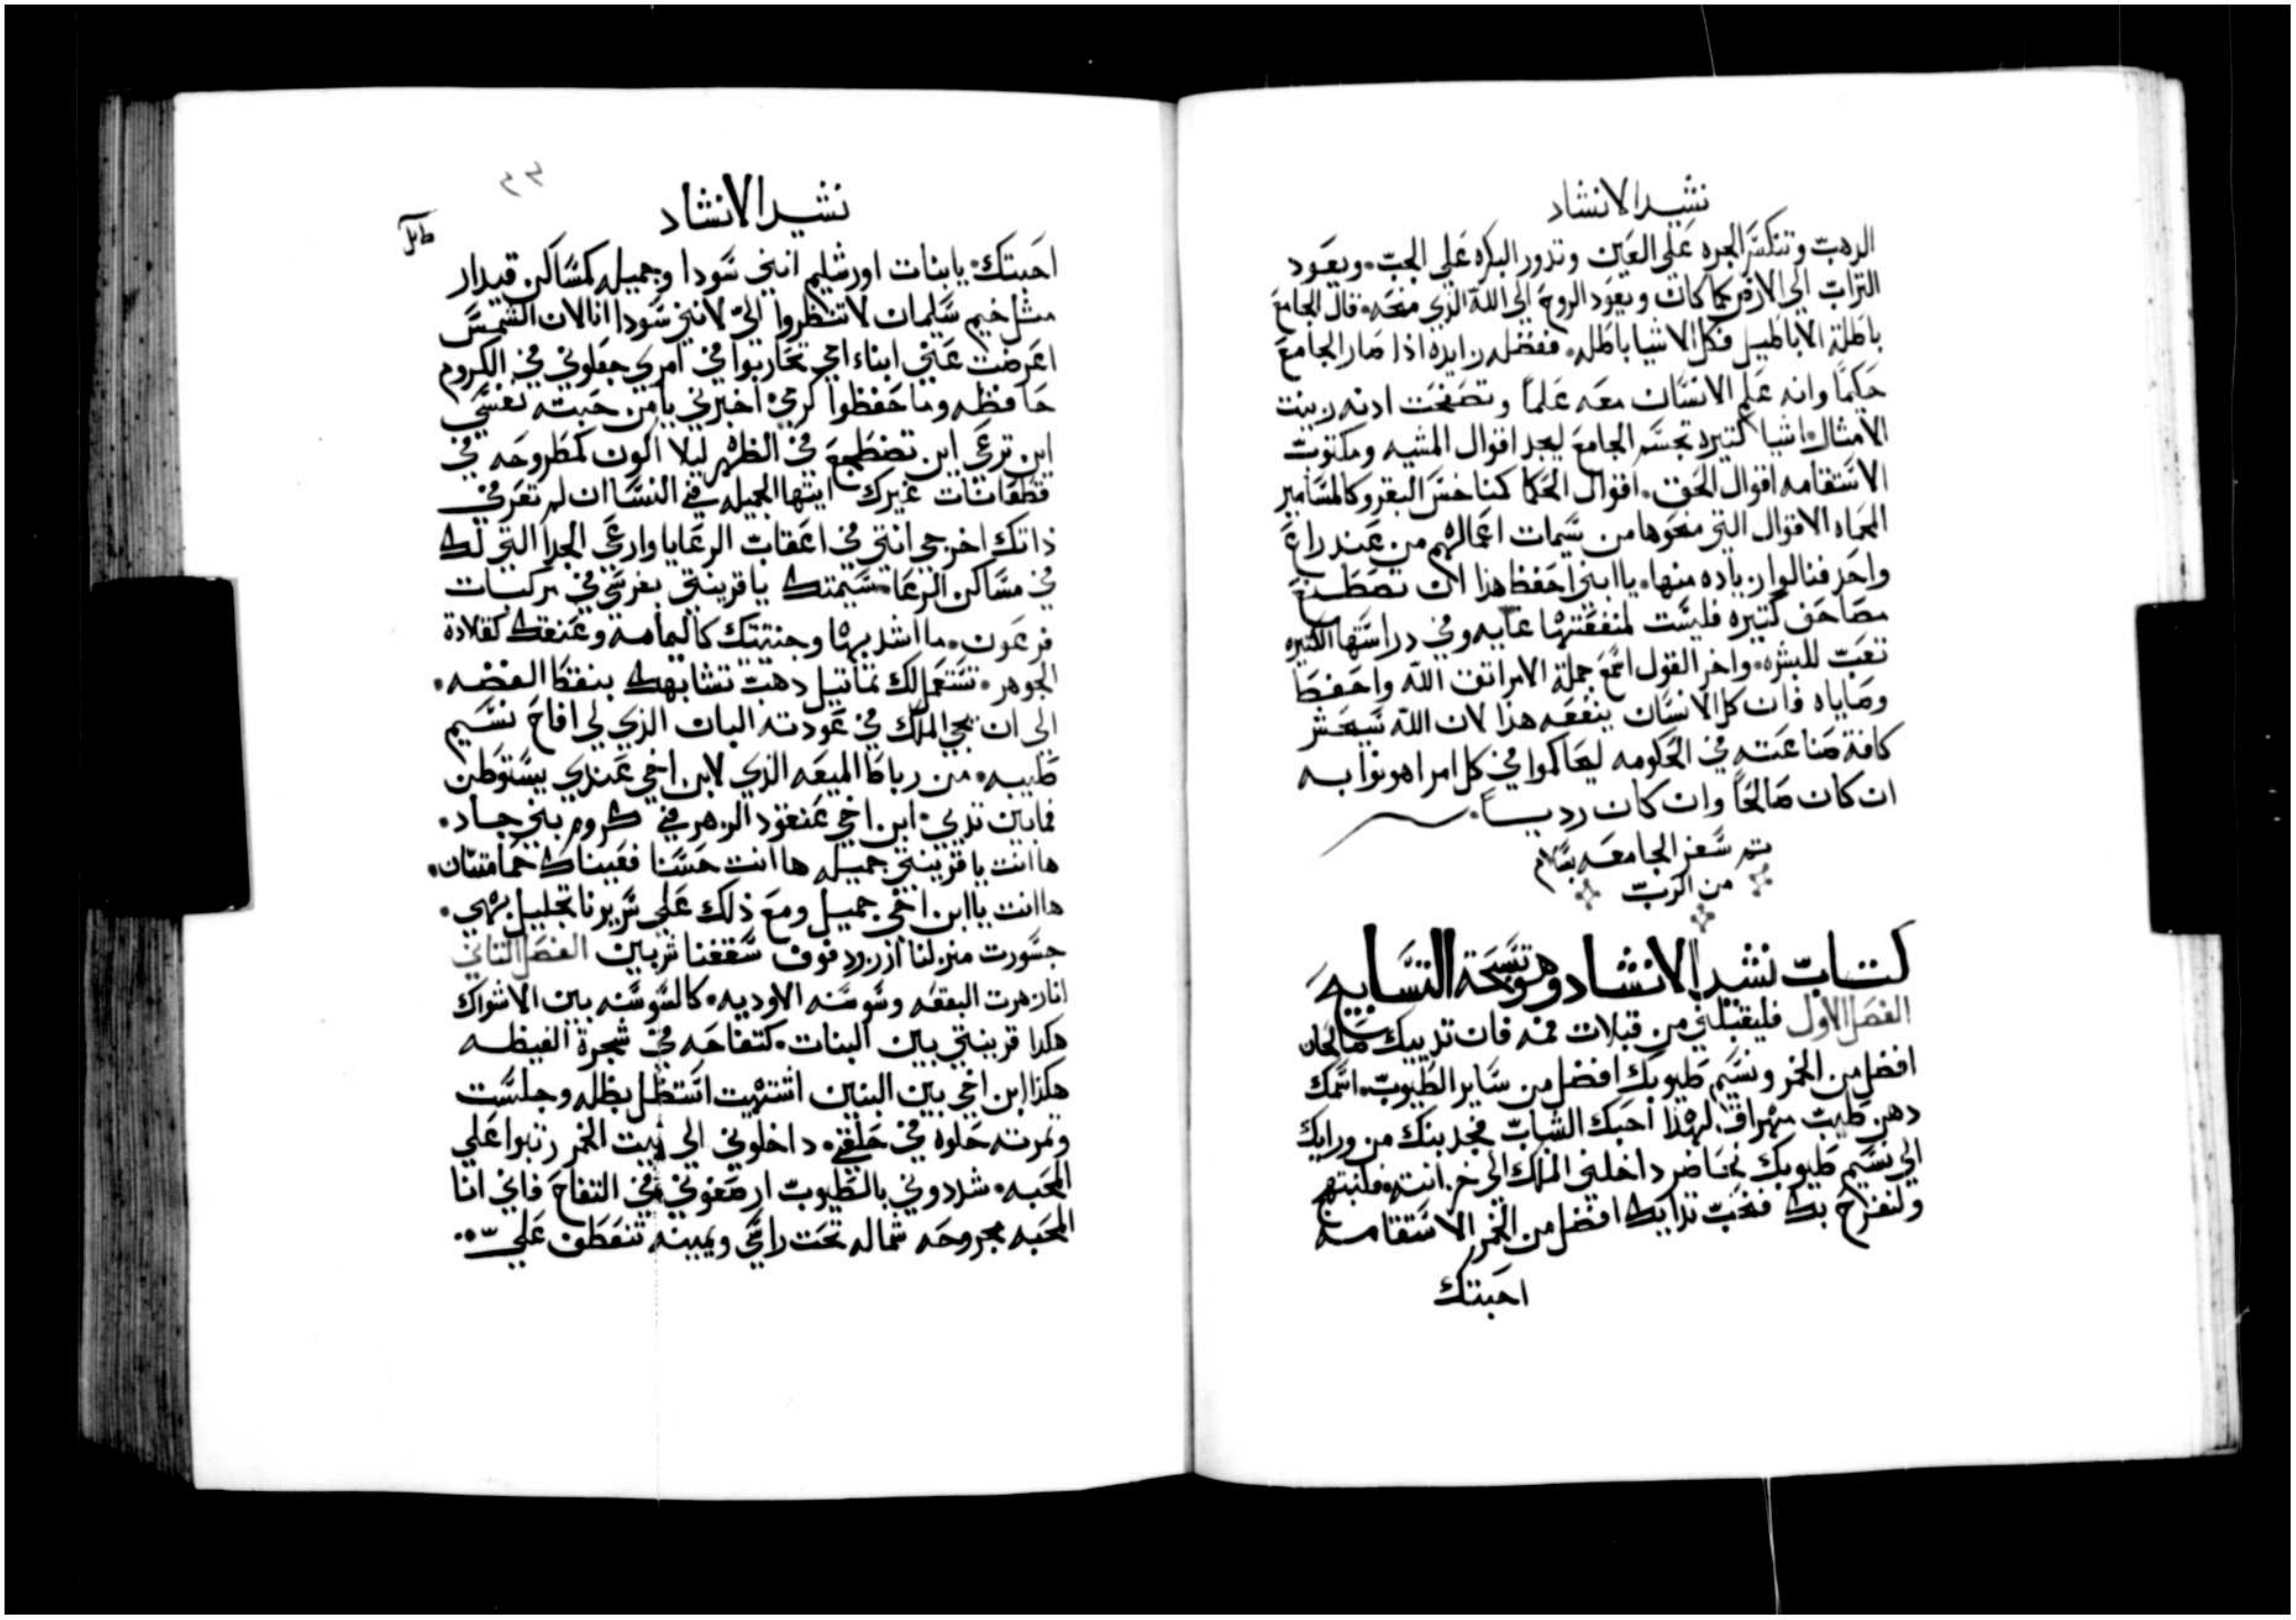 نشيد الانشاد
الدهب وتنكسر الجره على العين وتدور البكره على الجب. ويعود
التراب الى الارض كما كان ويعود الروح الى الله الذي منحه. قال الجامع
باطلة الاباطيل فكل الاشيا باطله. ففضله زايده اذا صار الجامع
حكيمًا وانه علم الانسان معه علمًا وتصفحت ادنه زينت
الامثال. اشيا كتيره تجسم الجامع ليجد اقوال المشيه ومكتوب
الاستقامه اقوال الحق. اقوال الحكما كمناخس البقر وكالمسامير
المحماه الاقوال التي منحوها من سيمات اعمالهم من عند راع
واحد فنالوا زياده منها. يا ابني احفظ هذا ان تصطنع
مصاحف كتيره فليست لمنفعتها غايه وفي دراستها الكتيره
تعب للبشره. واخر القول اسمع جملة الامر اتق الله واحفظ
وصاياه فان كل الانسان ينفعه هذا لان الله سيحشر
كافة صناعته في الحكومه ليحاكموا في كل امر اهونوا به
ان كان صالحًا وان كان رديـًا.
تم سفر الجامعه بسلام
من الرب
كتاب نشيد الانشاد وهو تسبحة التسابيح
الفصل الاول فليقبلني من قبلات فمه فان تدييك صالحان
افضل من الخمر ونسيم طيوبك افضل من ساير الطيوب. اسمك
دهن طيب مهراق. لهذا احبك الشباب فجدبنك من ورايك
الى نسيم طيوبك نحاضر داخلني الملك الى خزانته. فلنبتهج
ولنفرح بك فنحب تداييك افضل من الخمر الاستقامه
احبتك
٢٣
نشيد الانشاد
احبتك. يا بنات اورشليم انني سودا وجميله كمساكن قيدار
مثل خيم سليمان لا تنظروا الىّ لانني سودا انا لان الشمس
اعرضت عني ابناء امي تحاربوا في امري جعلوني في الكروم
حافظه وما حفظوا كرمي اخبرني يا من حبته نفسي
اين ترعى اين تضطجع في الظهر ليلا اكون كمطروحه في
قطعانات غيرك ايتها الجميله في النسا ان لم تعرفي
ذاتك اخرجي انتي في اعقاب الرعايا وارعي الجدا التي لك
في مساكن الرعا. سيمتك يا قرينتي بفرسي في مركبات
فرعون. ما اشد بها وجنتك كاليمامه وعنقك كقلادة
الجوهر. نستعمل لك تماتيل دهب تشابهك بنقط الفضه.
الى ان يجي الملك في عودته البان الذي لي افاح نسيم
طيبه. من رباط الميعه الذي لابن اخي عندي يستوطن
فمابين تديي. ابن اخي عنقود الزهر في كروم بني جاد.
ها انت يا قرينتي جميله ها انت حسنا فعيناك حمامتان.
ها انت يا ابن اخي جميل ومع ذلك على سريرنا تجليل بهي.
جسورت منزلنا ارز رد فوف سقفنا شربين الفصل التاني
انا زهرت البقعه وسوسنه الاوديه. كالسوسنه بين الاشواك
هكدا قرينتي بين البنات. كتفاحه في شجرة الغيظه
هكذا ابن اخي بين البنين اشتهيت استظل بظله وجلست
وتمرته حلوه في حلقي. داخلوني الى بيت الخمر رتبوا على
المحبه. شددوني بالطيوب ارصفوني في التفاح فاني انا
المحبه مجروحه شماله تحت راسي ويمينه تنعطف عليّ.